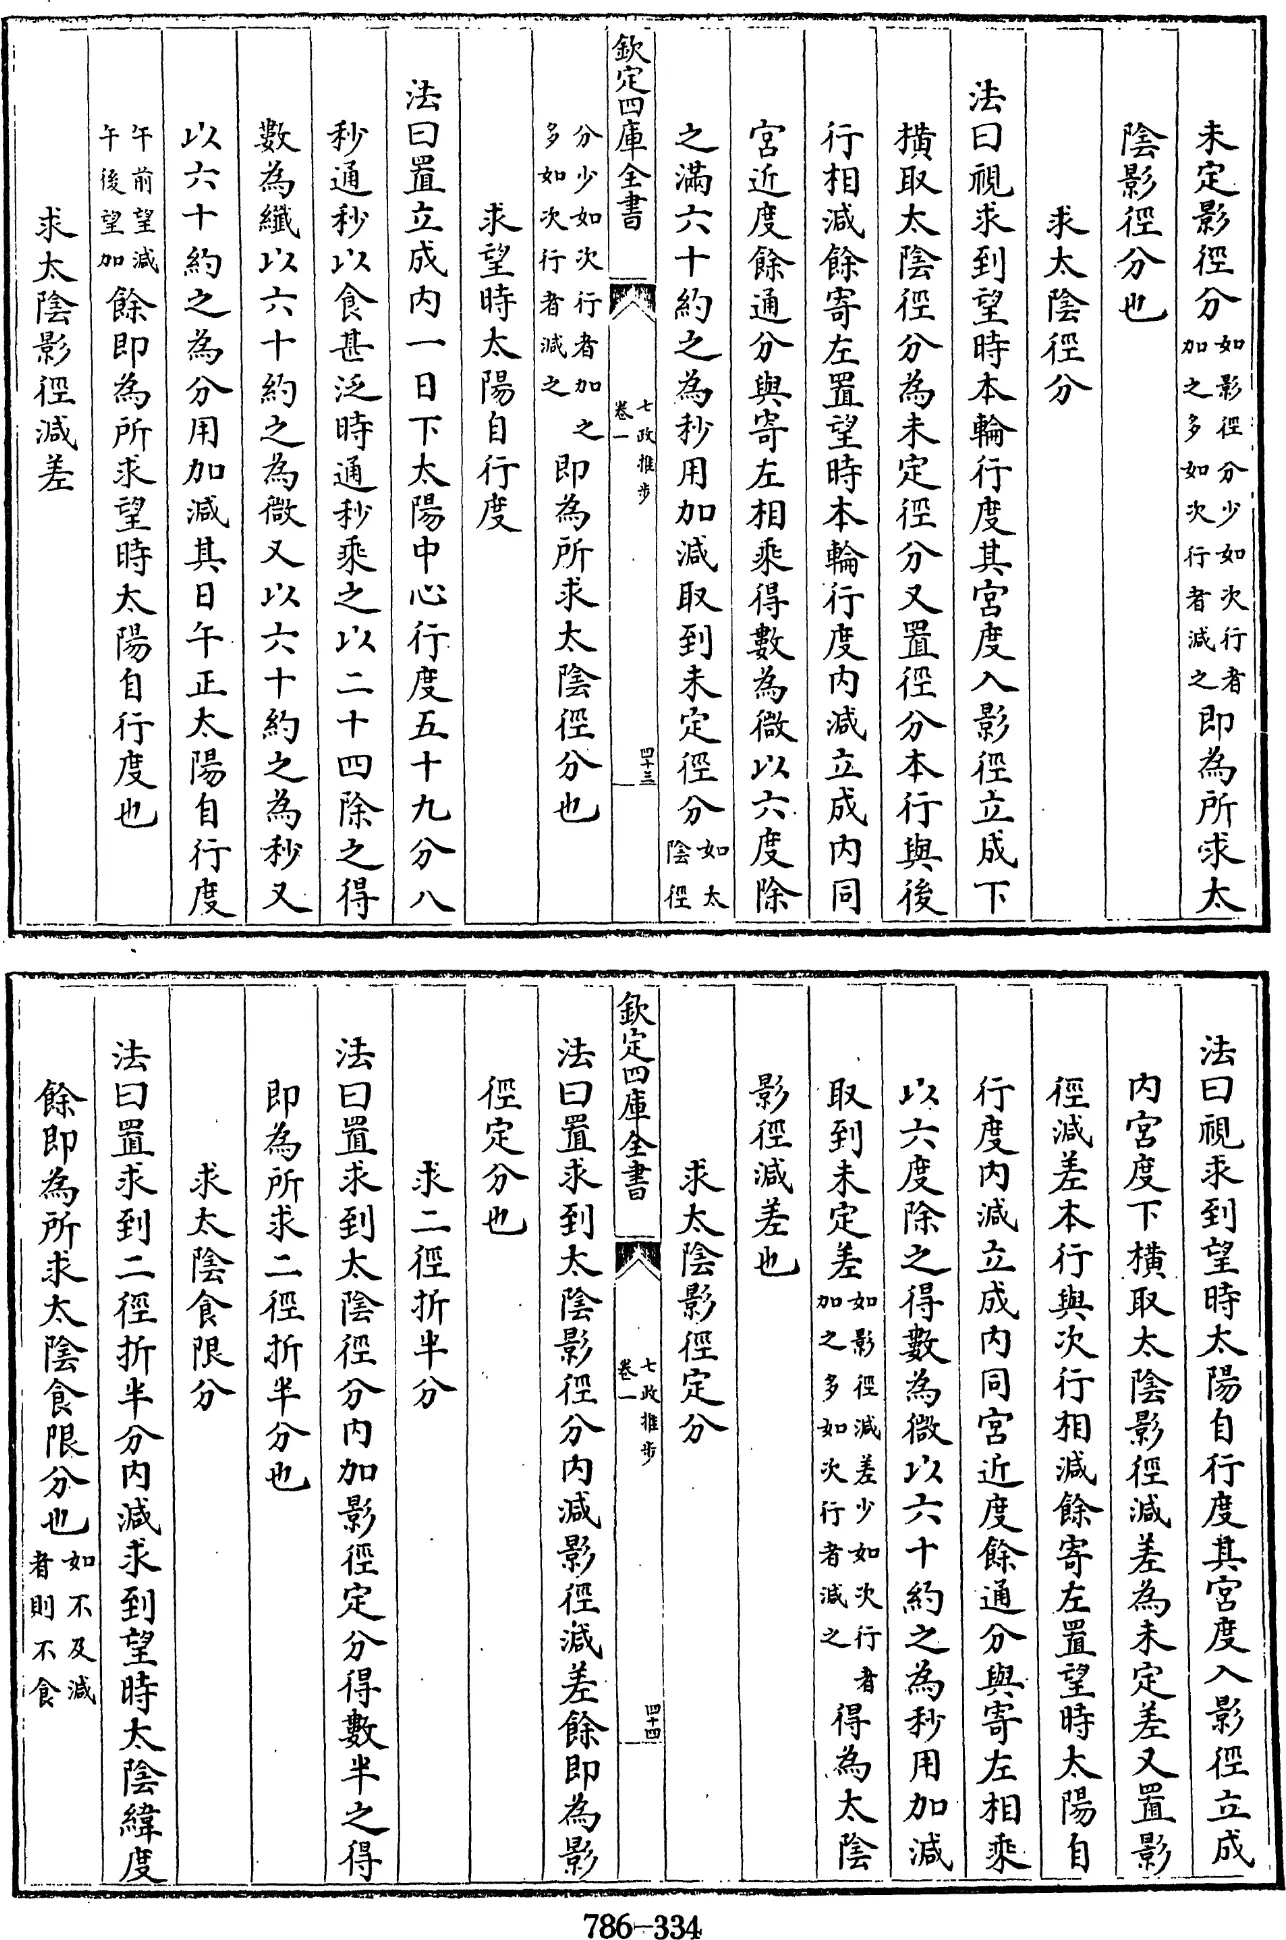 未定影徑分如影徑分少如次行者加之多如次行者減之即為所求太
陰影徑分也
求太陰徑分
法曰視求到望時本輪行度其宮度入影徑立成下
橫取太陰徑分為未定徑分又置徑分本行與後
行相減餘寄左置望時本輪行度内減立成内同
宮近度餘通分與寄左相乘得數為微以六度除
之滿六十約之為秒用加減取到未定徑分如太陰徑
欽定四庫全書
七政推步
卷一
四十三
分少如次行者加之多如次行者減之即為所求太陰徑分也
求望時太陽自行度
法曰置立成内一日下太陽中心行度五十九分八
秒通秒以食甚泛時通秒乘之以二十四除之得
數為纖以六十約之為微又以六十約之為秒又
以六十約之為分用加減其日午正太陽自行度
午前望減午後望加餘即為所求望時太陽自行度也
求太陰影徑減差
法曰視求到望時太陽自行度其宮度入影徑立成
内宮度下橫取太陰影徑減差為未定差又置影
徑減差本行與次行相減餘寄左置望時太陽自
行度内減立成内同宮近度餘通分與寄左相乘
以六度除之得數為微以六十約之為秒用加減
取到未定差如影徑減差少如次行者加之多如次行者減之得為太陰
影徑減差也
求太陰影徑定分
欽定四庫全書
七政推步
卷一
四十四
法曰置求到太陰影徑分内減影徑減差餘即為影
徑定分也
求二徑折半分
法曰置求到太陰徑分内加影徑定分得數半之得
即為所求二徑折半分也
求太陰食限分
法曰置求到二徑折半分内減求到望時太陰緯度
餘即為所求太陰食限分也如不及減者則不食
786-334